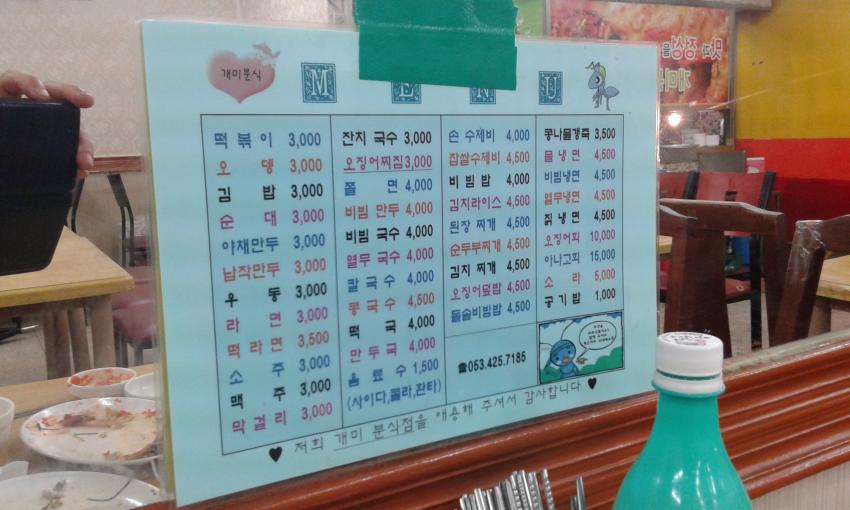 개미분식
MENU
떡볶이 3,000
오뎅 3,000
김밥 3,000
순대 3,000
야채만두 3,000
납작만두 3,000
우동 3,000
라면 3,000
떡라면 3,500
소주 3,000
맥주 3,000
막걸리 3,000
잔치 국수 3,000
오징어찌짐 3,000
쫄면 4,000
비빔 만두 4,000
비빔 국수 4,000
열무 국수 4,000
칼국수 4,000
콩국수 4,500
떡국 4,000
만두국 4,000
음료수 1,500
(사이다,콜라,환타)
손 수제비 4,000
찹쌀수제비 4,500
비빔밥 4,000
김치라이스 4,500
된장 찌개 4,500
순두부찌개 4,500
김치 찌개 4,500
오징어덮밥 4,500
돌솥비빔밥 4,500
☎053.425.7185
콩나물갱죽 3,500
물냉면 4,500
비빔냉면 4,500
열무냉면 4,500
칡냉면 4,500
오징어회 10,000
아나고회 15,000
소라 5,000
공기밥 1,000
♥ 저희 개미 분식점을 애용해 주셔서 감사합니다 ♥